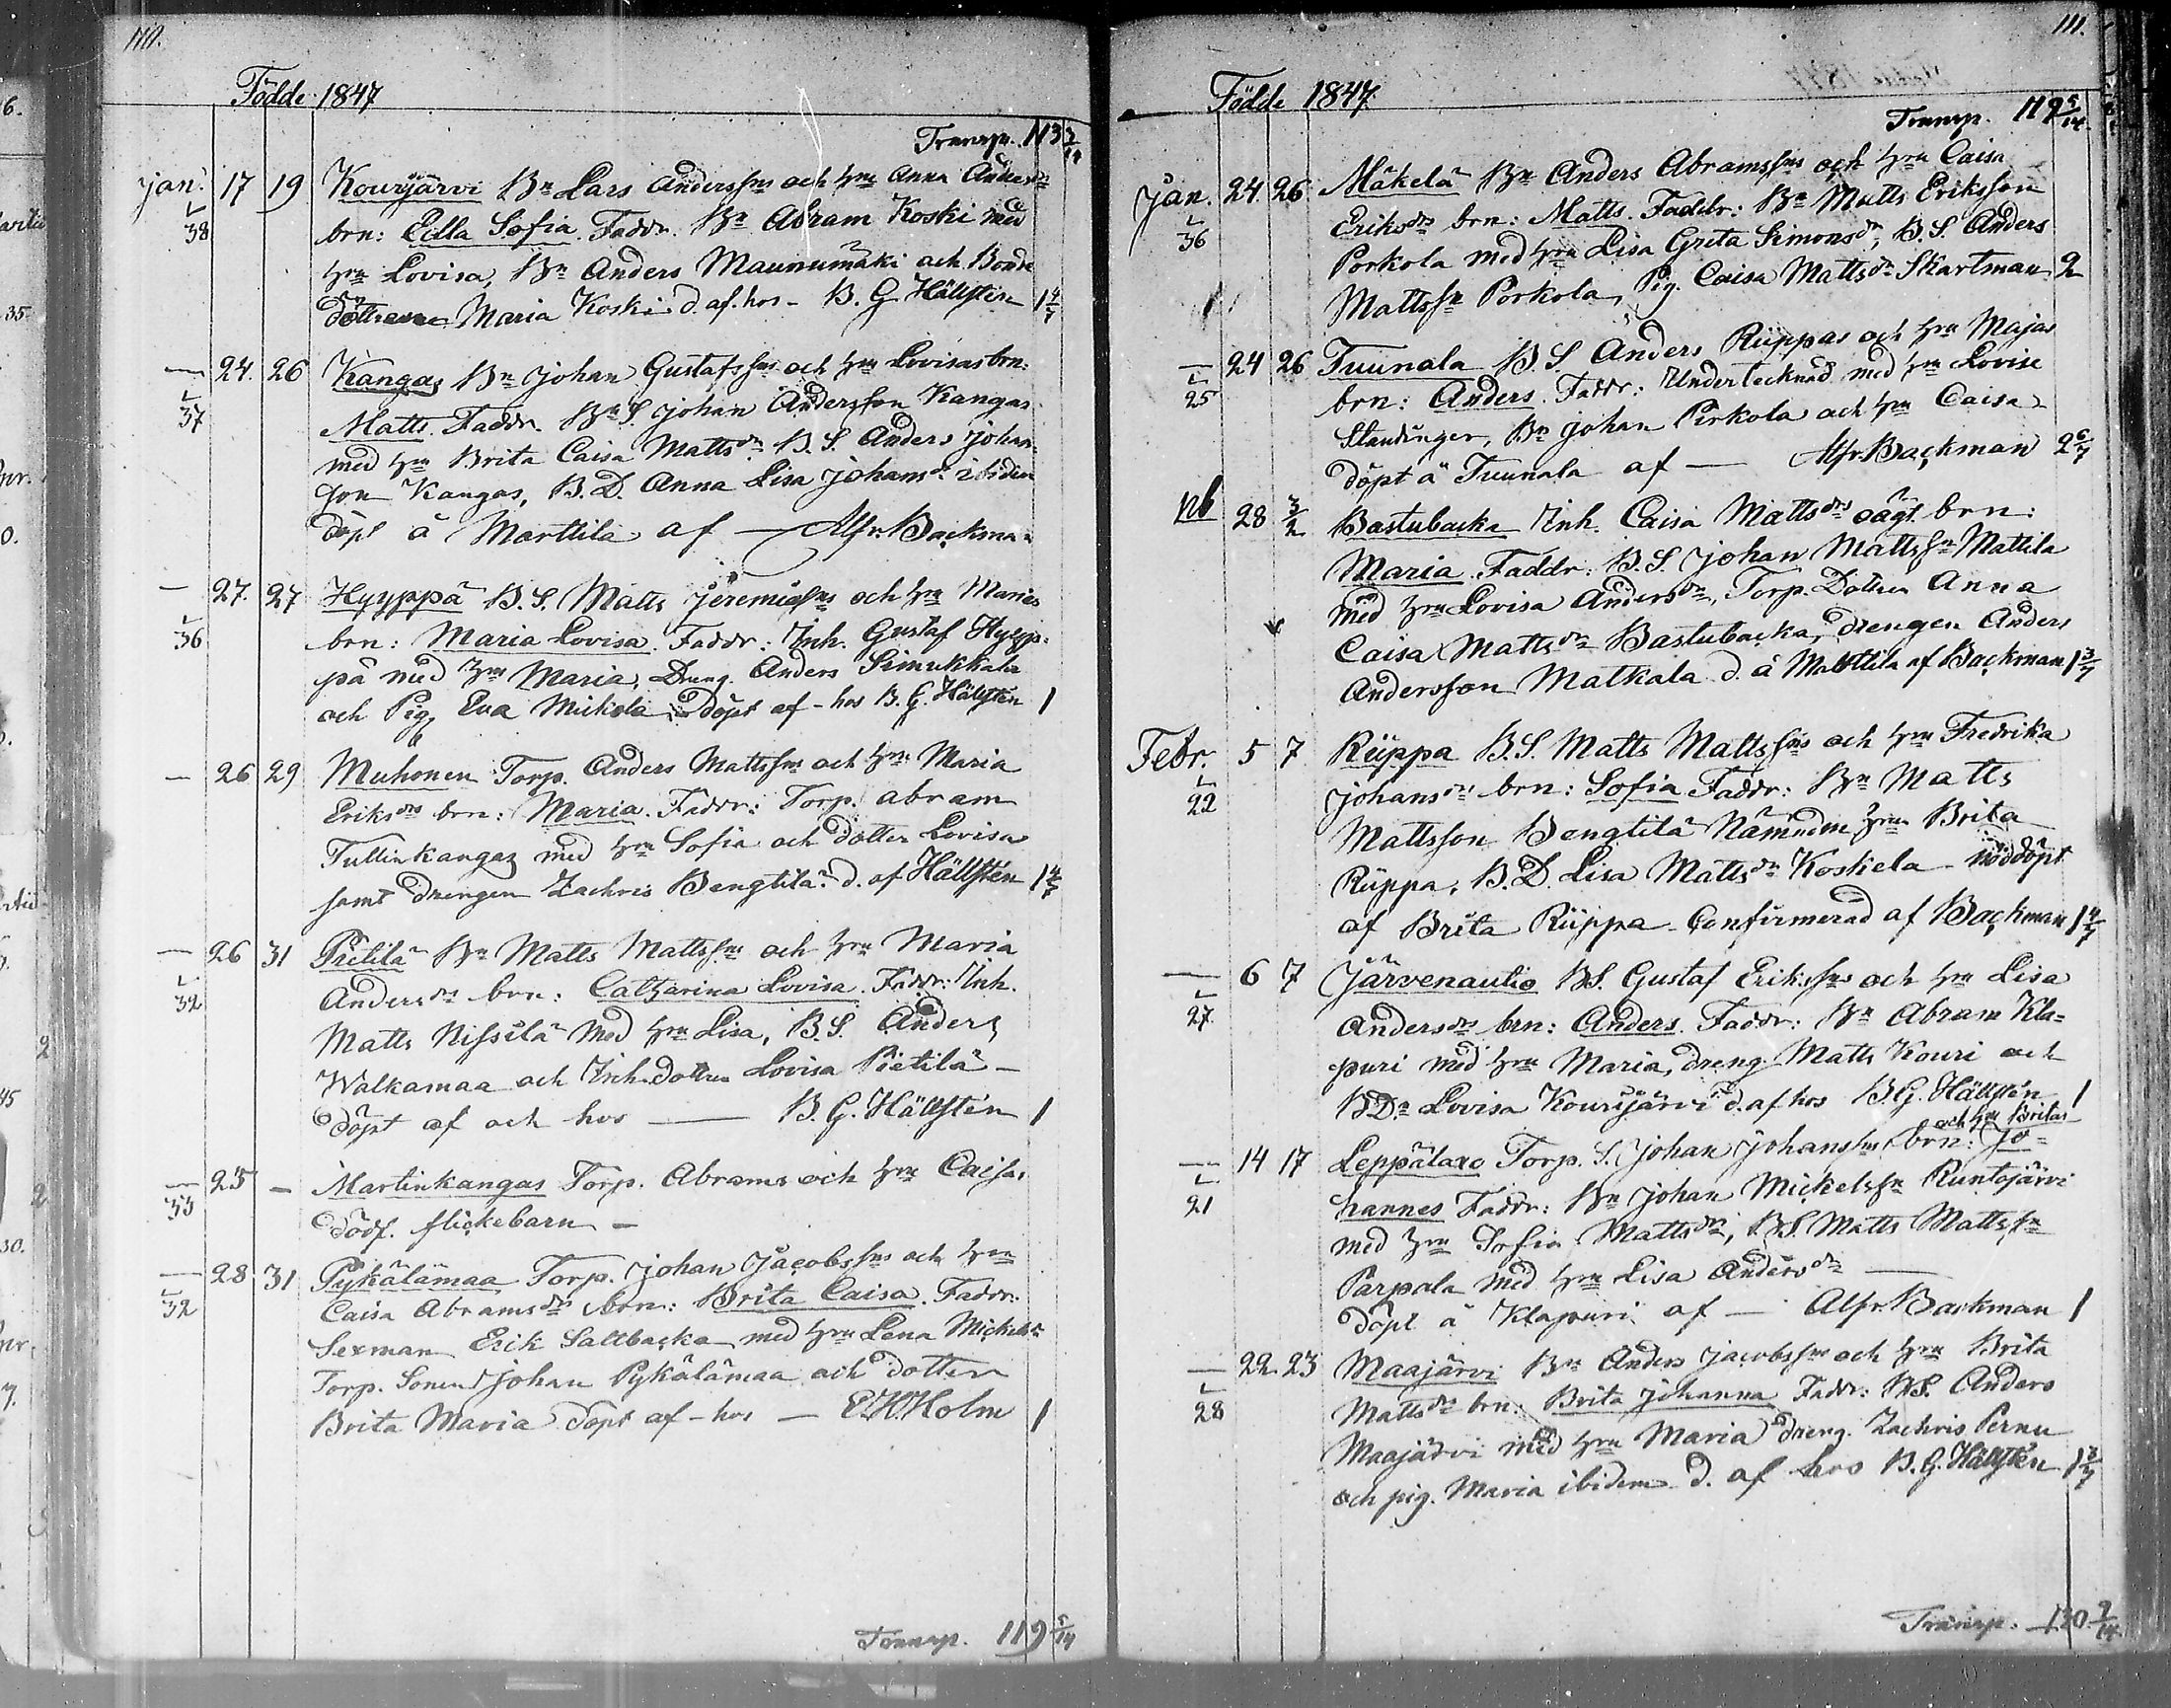 110.
Födde 1847
Transp. 113 3/14
Jan. 17 19 Kourijärvi Bn Lars Anderssns och hru Anna Andersdrs
38 brn: Edla Sofia. Faddr. Bn Abram Koski med
hru Lovisa, Bn Anders Maunumäki och Bonde
dottren Maria Koski d. af. hos - B. G. Hällsten 1 4/7
— 24. 26 Kangas Bn Johan Gustafssns och hru Lovisas brn:
37 Matts. Faddr. Bn S. Johan Andersson Kangas
med hru Brita Caisa Mattsdr. B. S. Anders Johans-
son Kangas, B. D. Anna Lisa Johansdr. ibidem
döpt å Marttila af — Alfr. Backman
— 27. 27 Hyyppä B. S. Matts Jeremiæsns och hru Marias
36 brn: Maria Lovisa. Faddr: Inh. Gustaf Hyyp-
pä med hru Maria, Dreng. Anders Simukkala
och Pig. Eva Mickola döpt af - hos B. G. Hällsten 1
— 26 29 Muhonen Torp. Anders Mattssns och hru Maria
Eriksdrs brn: Maria. Faddr: Torp. Abram
Tullinkangas med hru Sofia och dotter Lovisa
samt drengen Zachris Bengtilä. d. af Hällsten 1 4/7
— 26 31 Pietilä Bn Matts Mattssns och hru Maria
32 Andersdrs brn: Catharina Lovisa. Faddr: Inh.
Matts Nissilä med hru Lisa, B. S. Anders
Walkamaa och Inh. dottren Lovisa Pietilä —
döpt af och hos — B. G. Hällsten 1
— 25 — Martinkangas Torp. Abrams och hru Caisas
33 dödf. flickebarn —
— 28 31 Pykälämaa Torp. Johan Jacobssns och hru
32 Caisa Abramsdrs brn: Brita Caisa. Faddr:
Sexman Erik Saltbacka med hru Lena Mickelsdr
Torp. Sonen Johan Pykälämaa och dotter
Brita Maria döpt af - hos — E. H. Holm 1
Transp. 119 5/14
111.
Födde 1847.
Transp. 119 5/14
Jan. 24. 26 Mäkelä Bn Anders Abramssns och hru Caisa
36 Eriksdrs brn: Matts. Faddr: Bn Matts Eriksson
Porkola med hru Lisa Greta Simonsdr, B. S. Anders
Mattssn Porkola, Pig. Caisa Mattsdr Skartman 2
— 24 26 Tuunala B. S. Anders Riippas och hru Majas
25 brn: Anders. Faddr: Undertecknad med hru Lovise
Standinger, Bn Johan Pirkola och hru Caisa
döpt å Tuunala af — Alfr. Backman 2 6/7
nb 28 3/2 Bastubacka Inh. Caisa Mattsdrs oägt. brn:
Maria. Faddr: B. S. Johan Mattssn Mattila
med hru Lovisa Andersdr, Torp. Dottren Anna
Caisa Mattsdr Bastubacka, drengen Anders
Andersson Matkala d. å Marttila af Backman 1 3/7
Febr. 5 7 Riippa B. S. Matts Mattssns och hru Fredrika
22 Johansdrs brn: Sofia Faddr: Bn Matts
Mattsson Bengtilä Nämndem. hru Brita
Riippa, B. D. Lisa Mattsdr Koskela - nöddöpt
af Brita Riippa. Confirmerad af Backman 1 4/7
— 6 7 Järvenautio BS. Gustaf Erikssns och hru Lisa
27. Andersdrs brn: Anders. Faddr: Bn Abram Kla-
puri med hru Maria, dreng. Matts Kouri och
B Dr Lovisa Kourijärvi d. af hos B. G. Hällsten 1
och hru Britas
— 14 17 Leppälaxo Torp. S. Johan Johanssns brn: Jo-
21 hannes Faddr: Bn Johan Mickelssn Runtojärvi
med hru Sofia Mattsdr, BS. Matts Mattssn
Parpala med hru Lisa Andersdr —
döpt å Klapuri af — Alfr. Backman 1
— 22. 23 Maajärvi Bn Anders Jacobssns och hru Brita
28 Mattsdrs brn: Brita Johanna Faddr: BS. Anders
Maajärvi med hru Maria dreng. Zachris Pernu
och pig. Maria ibidem d. af hos B. G. Hällsten 1 3/7
Transp. 130. 9/14.